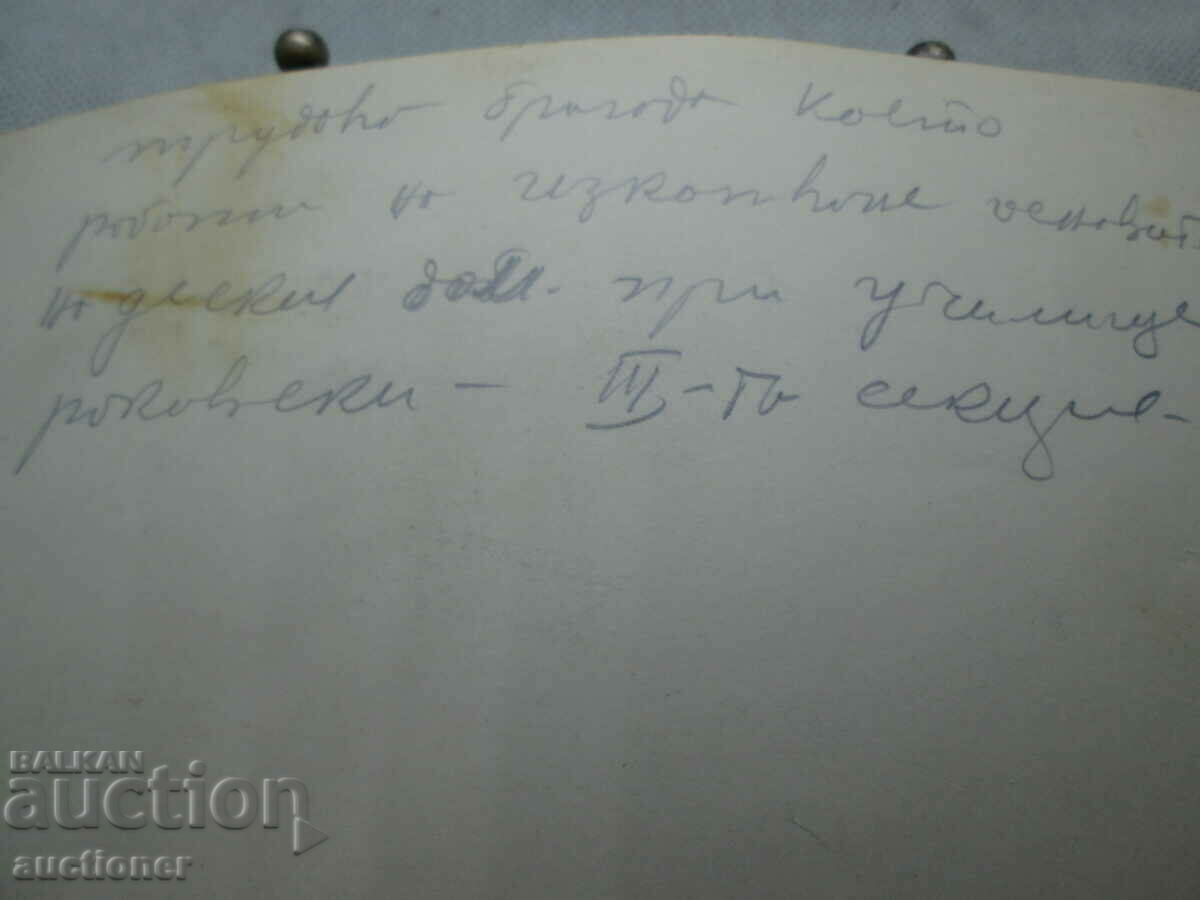 трудова бригада която
работи на изкопаване основит
на детския дом. при училище
раковски – III-та секция-
BALKAN
auction
auctioner